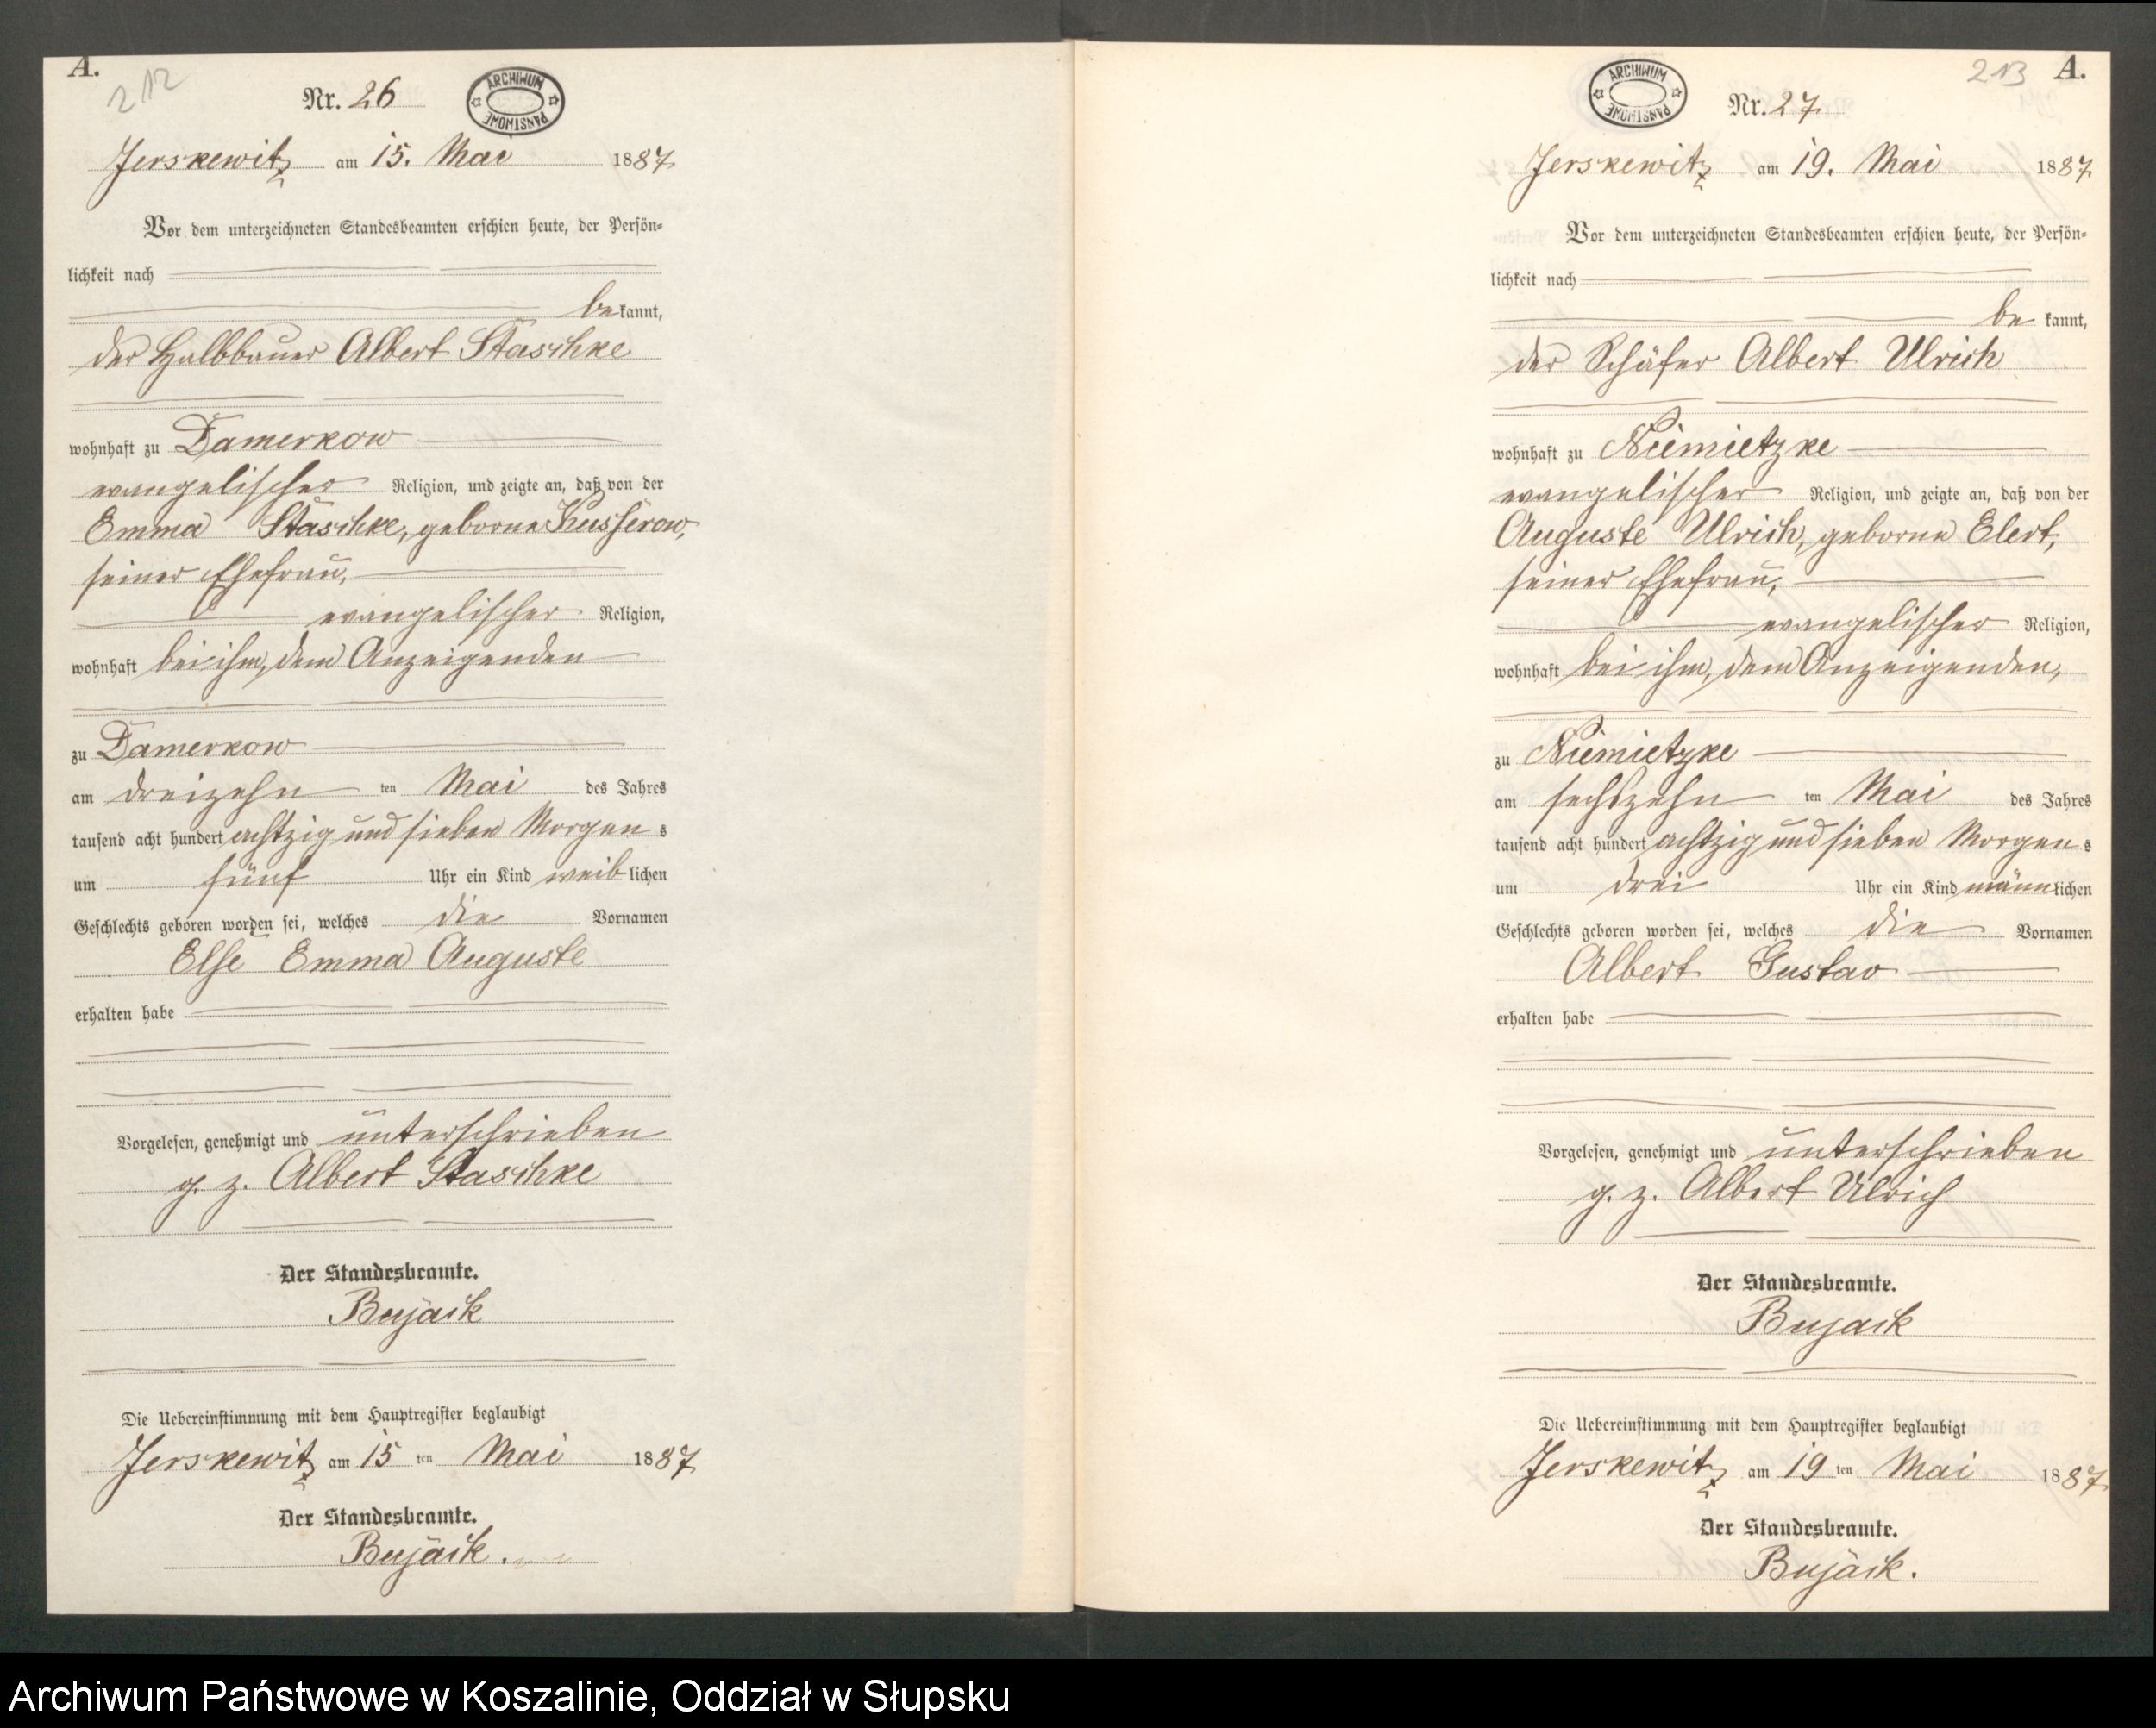 A.
212
Nr. 26
ARCHIWUM PAŃSTWOWE
Jerskewitz am 15. Mai 1887
Vor dem unterzeichneten Standesbeamten erschien heute, der Persön-
lichkeit nach
bekannt,
der Halbbauer Albert Staschke
wohnhaft zu Damerkow
evangelischer Religion, und zeigte an, daß von der
Emma Staschke, geborne Kusserow,
seiner Ehefrau,
evangelischer Religion,
wohnhaft bei ihm, dem Anzeigenden
zu Damerkow
am dreizehn ten Mai des Jahres
tausend acht hundert achtzig und sieben Morgens
um fünf Uhr ein Kind weiblichen
Geschlechts geboren worden sei, welches die Vornamen
Else Emma Auguste
erhalten habe
Vorgelesen, genehmigt und unterschrieben
g. z. Albert Staschke
Der Standesbeamte.
Bujack
Die Uebereinstimmung mit dem Hauptregister beglaubigt
Jerskewitz am 15 ten Mai 1887
Der Standesbeamte.
Bujack.
213 A.
ARCHIWUM PAŃSTWOWE
Nr. 27
Jerskewitz am 19. Mai 1887
Vor dem unterzeichneten Standesbeamten erschien heute, der Persön-
lichkeit nach
bekannt,
der Schäfer Albert Ulrich
wohnhaft zu Niemietzke
evangelischer Religion, und zeigte an, daß von der
Auguste Ulrich, geborne Elert,
seiner Ehefrau,
evangelischer Religion,
wohnhaft bei ihm, dem Anzeigenden,
zu Niemietzke
am sechszehn ten Mai des Jahres
tausend acht hundert achtzig und sieben Morgens
um drei Uhr ein Kind männlichen
Geschlechts geboren worden sei, welches die Vornamen
Albert Gustav
erhalten habe
Vorgelesen, genehmigt und unterschrieben
g. z. Albert Ulrich
Der Standesbeamte.
Bujack
Die Uebereinstimmung mit dem Hauptregister beglaubigt
Jerskewitz am 19 ten Mai 1887
Der Standesbeamte.
Bujack.
Archiwum Państwowe w Koszalinie, Oddział w Słupsku